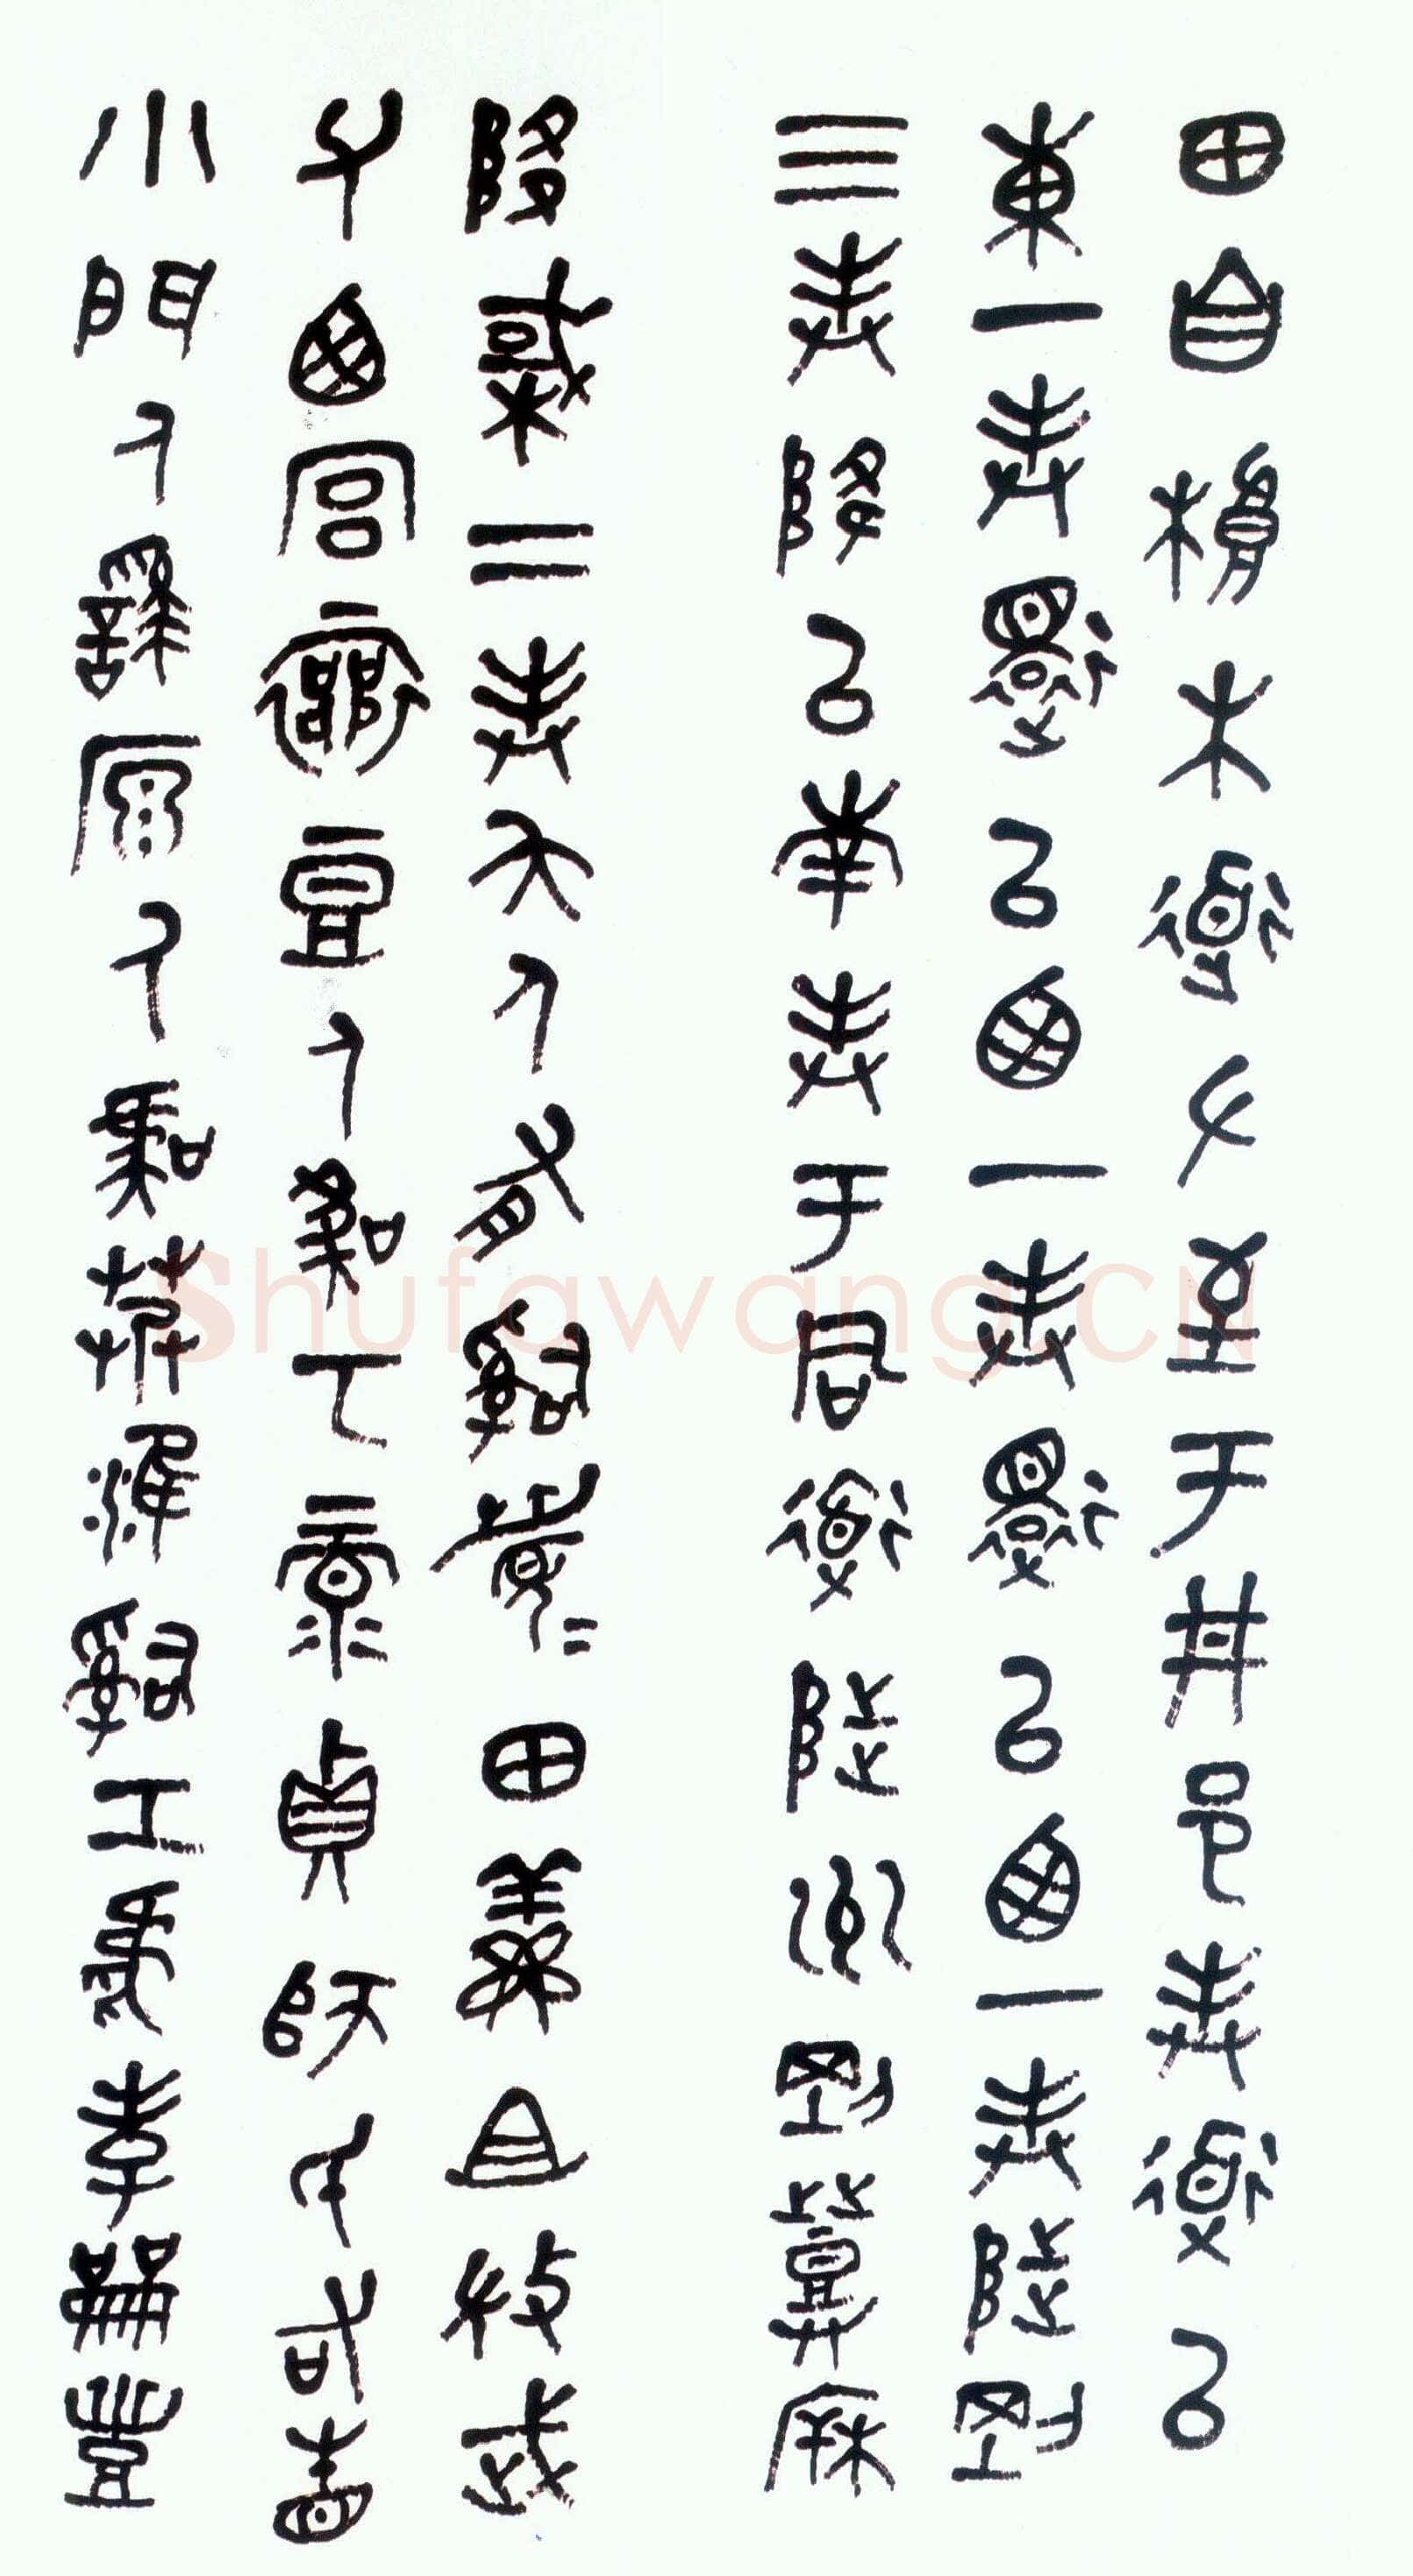 田自桹木道左至于井邑封道以
東一封還以西一封還以西一封陟剛
三封降以南封于同道陟州剛登㭤
降棫二封夨人有嗣眉田鮮且微武
父西宮襄豆人虞丂彔貞師氏右眚
小門人繇原人虞艿淮嗣工虎孝龠豐
Shufawang.CN